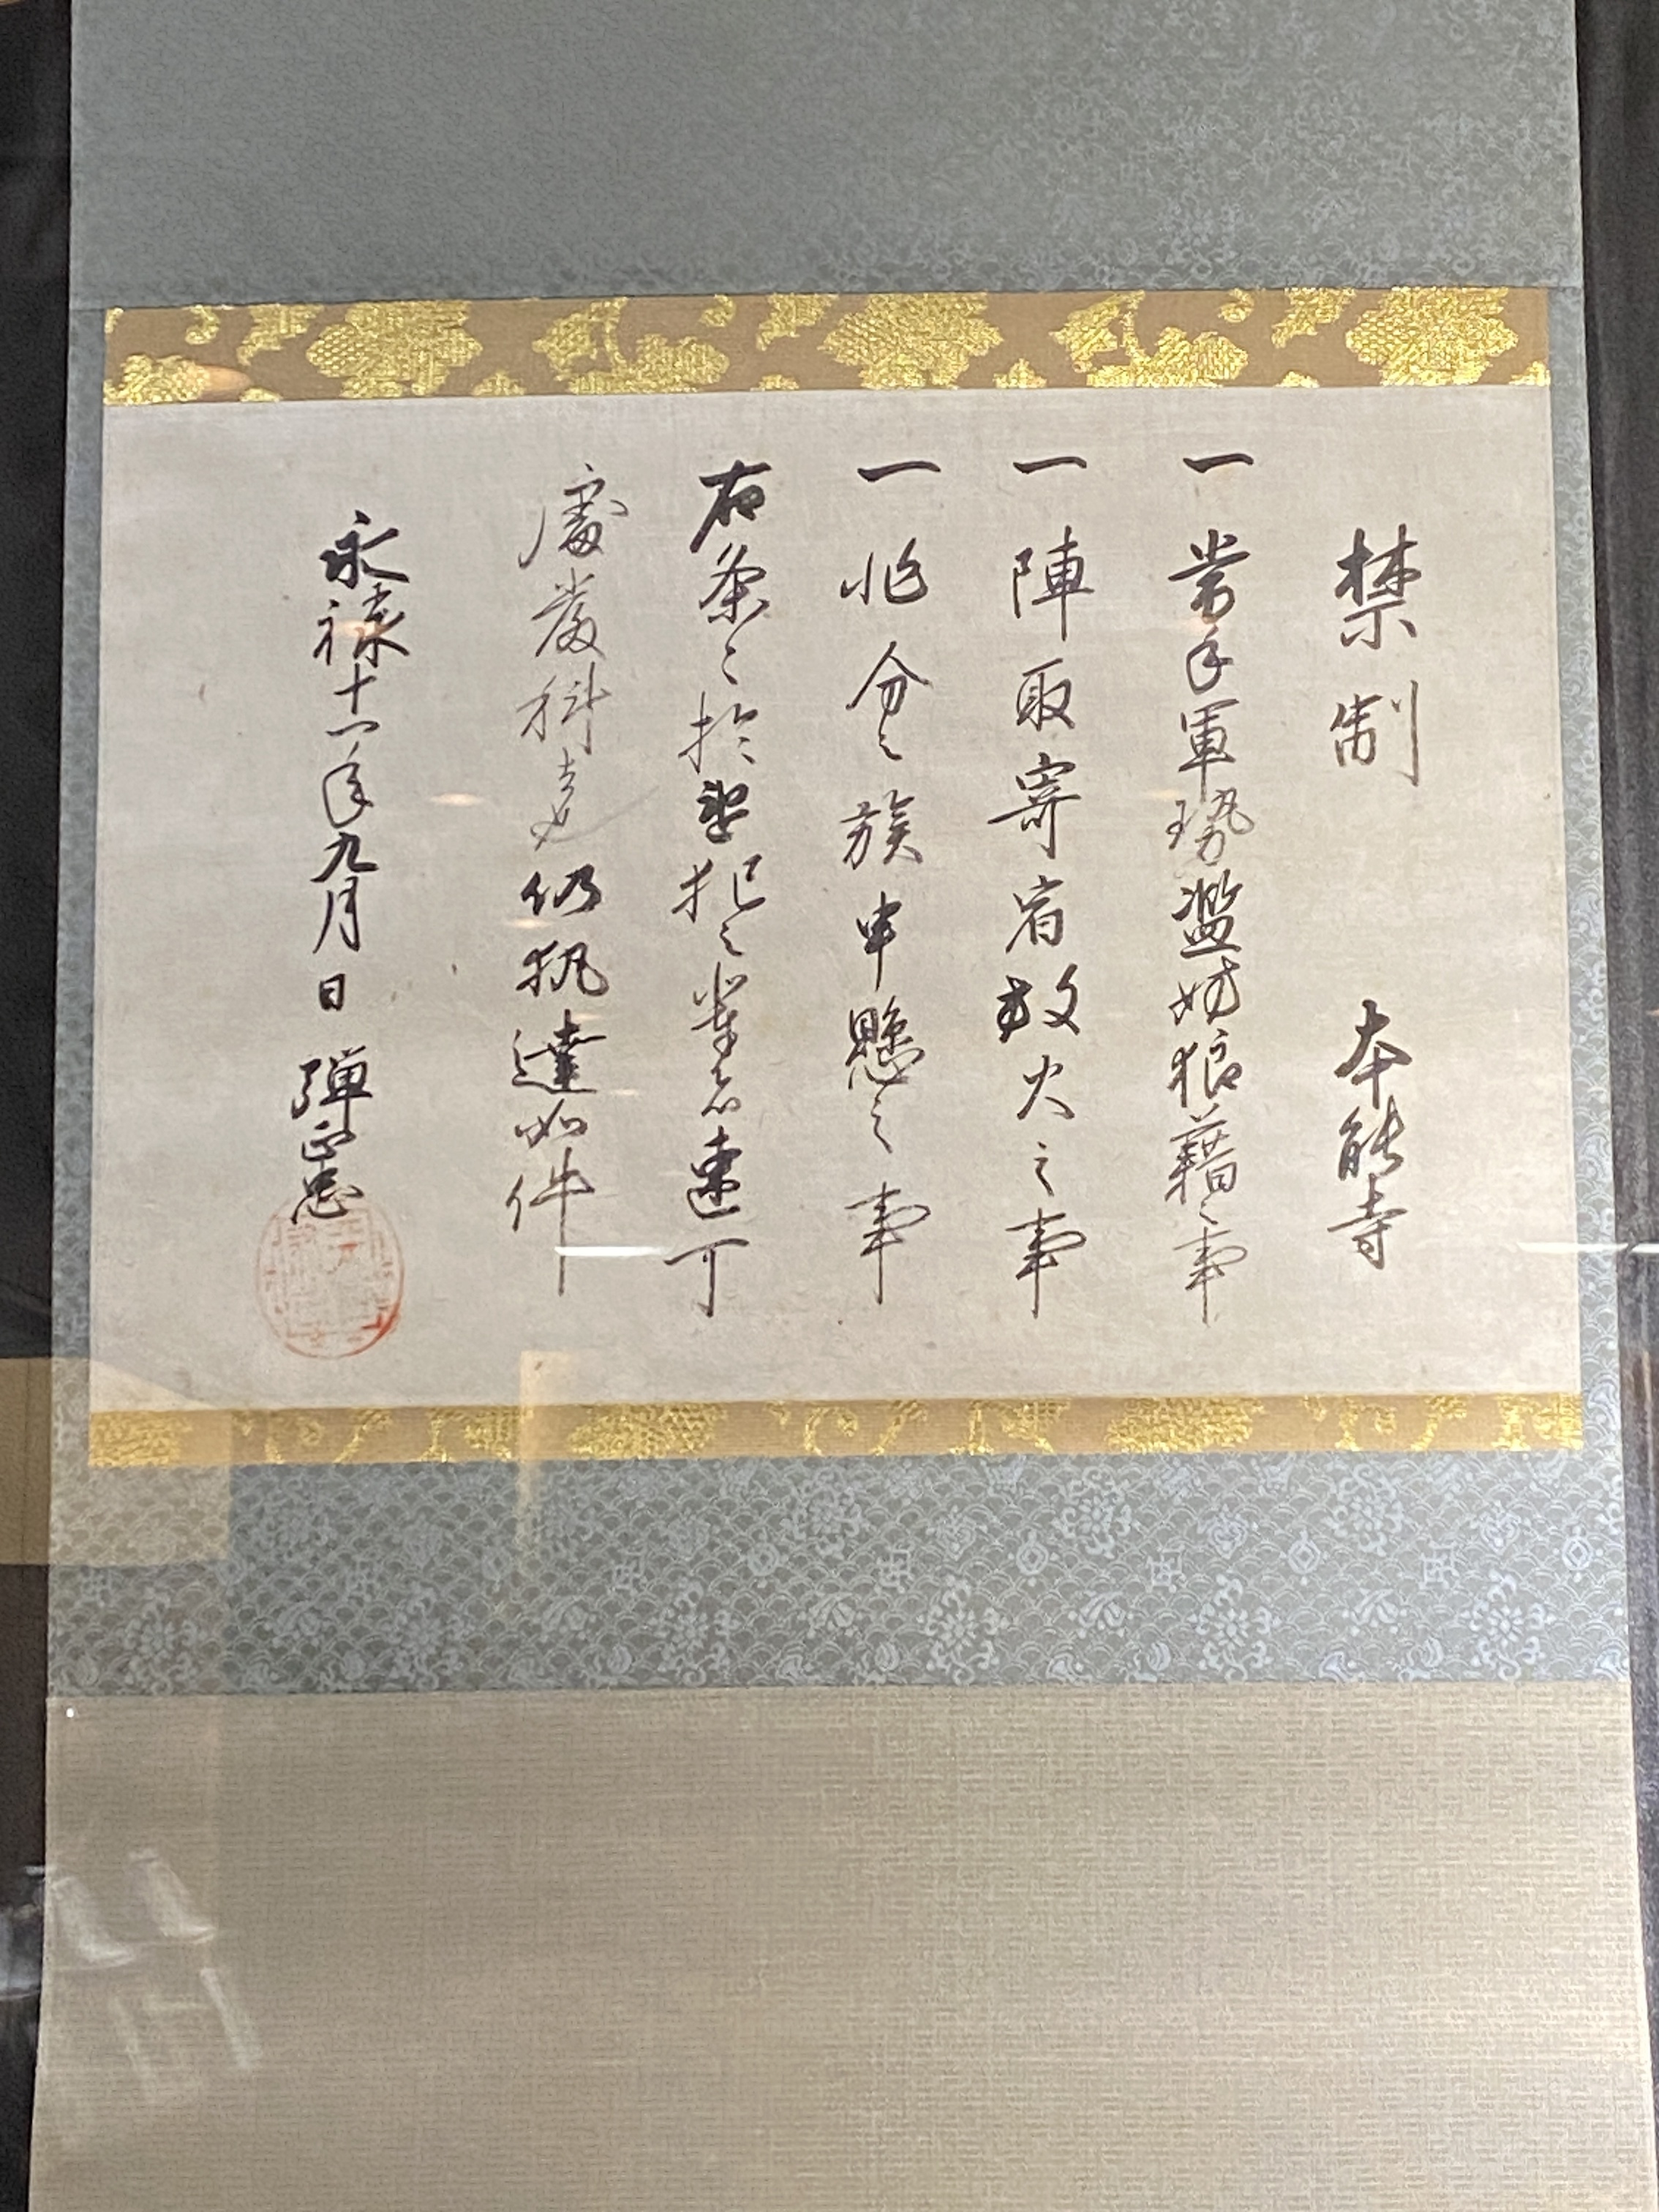 禁制 本能寺
一 当手軍勢濫妨狼藉之事
一 陣取寄宿放火之事
一 非分之族申懸之事
右条々於違犯之輩者速可
處厳科者也仍執達如件
永禄十一年九月日 弾正忠